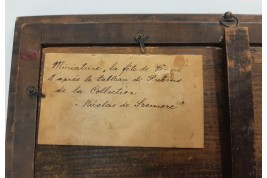 Miniature, la fête de
d'après le tableau de
de la Collection
- Nicolas de